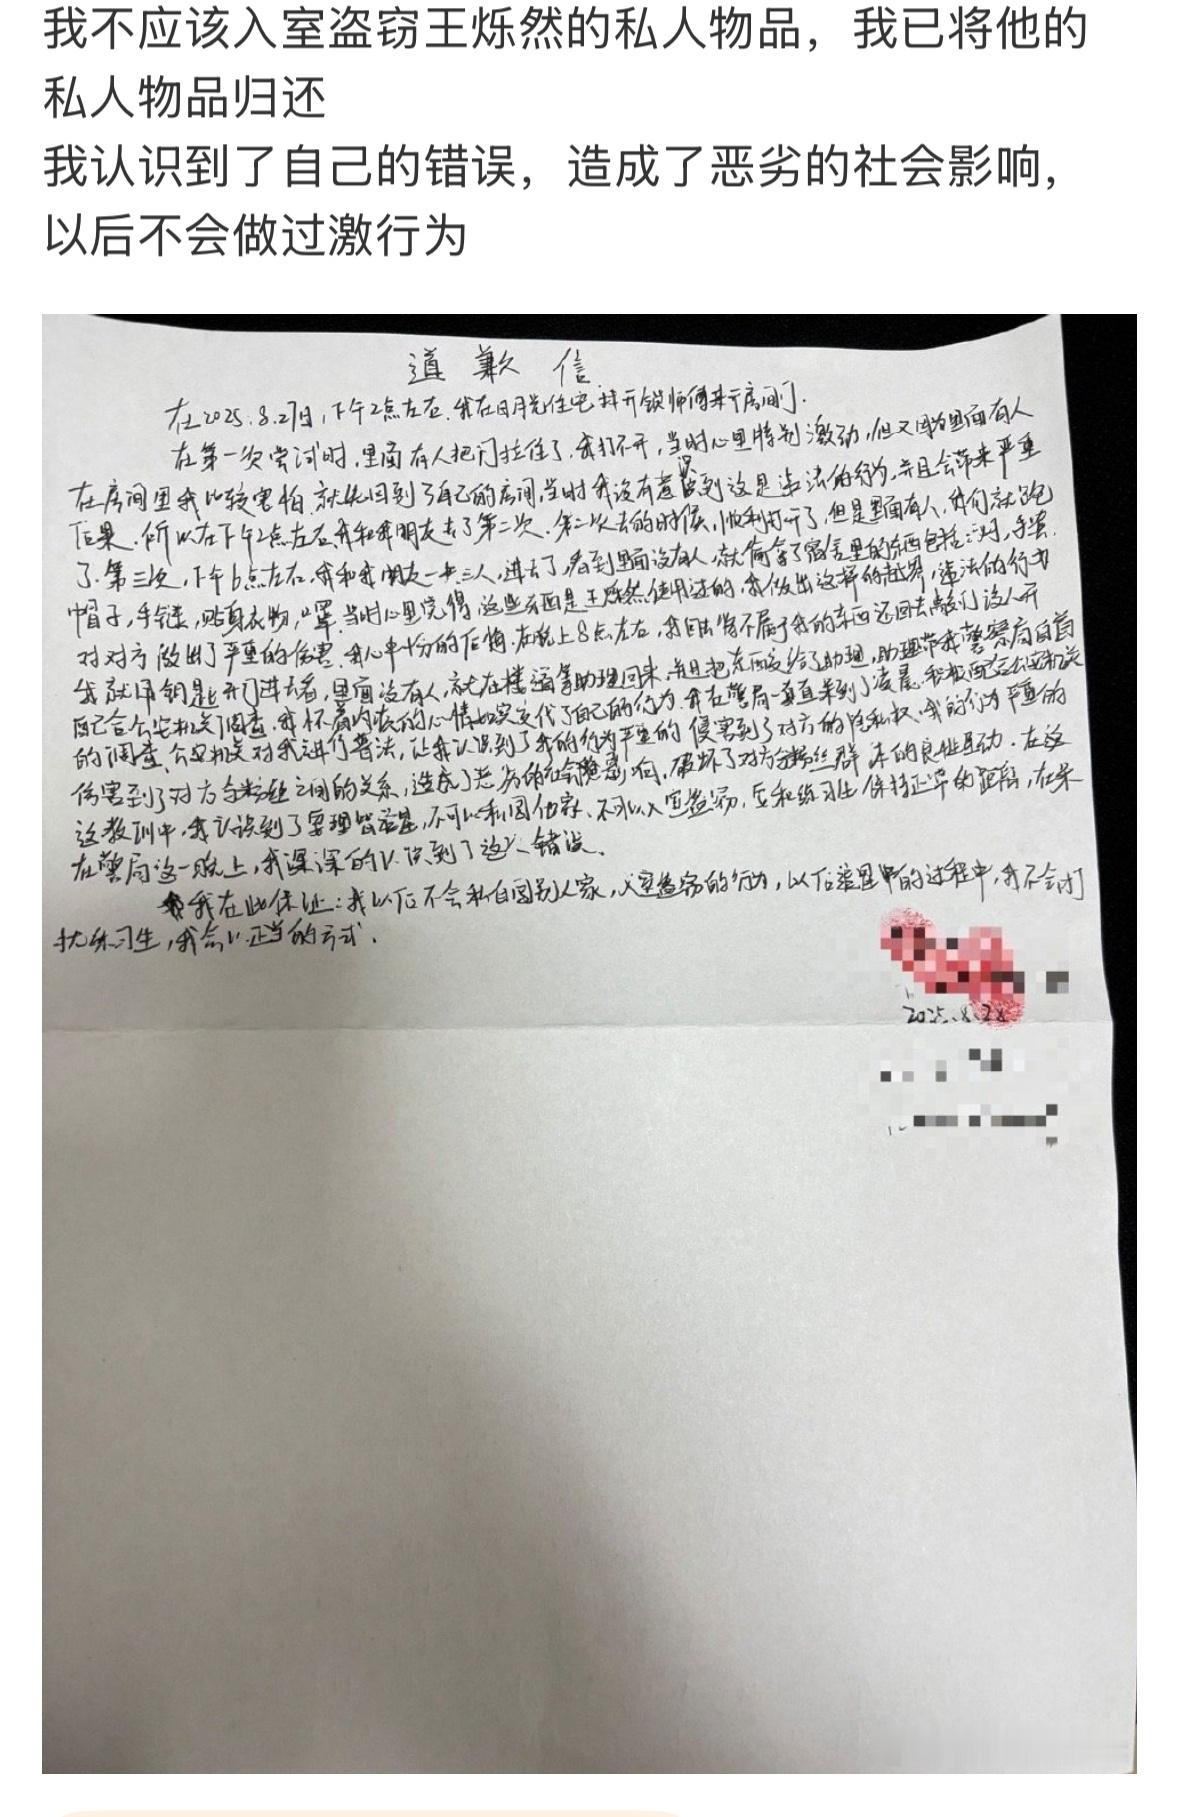 我不应该入室盗窃王烁然的私人物品，我已将他的
私人物品归还
我认识到了自己的错误，造成了恶劣的社会影响，
以后不会做过激行为
道歉信
在2025.8.27日，下午2点左右，我在日月光住宅找开锁师傅来开房间门.
在第一次尝试时，里面有人把门拉住了，我打不开，当时心里特别激动，但又因为里面有人
在房间里我比较害怕，就先回到了自己的房间，当时我没有意识到这是违法的行为，并且会带来严重
后果，所以在下午2点左右我和我朋友去了第二次，第二次去的时候，顺利打开了，但是里面有人，我们就跑
了.第三次，下午6点左右，我和我朋友一共三人，进去了，看到里面没有人，就偷拿了宿舍里的东西包括：
帽子，手链，贴身衣物，口罩，当时心里觉得，这些东西是王烁然使用过的，我做出这样的越界，违法的行为
对对方做出了严重的伤害，我心中十分的后悔，在晚上8点左右，我回去将不属于我的东西还回去敲门没人开
我就用钥匙开门进去看，里面没有人，就在楼道等助理回来，并且把东西交给了助理，助理带我警察局自首
配合公安机关调查，我怀着内疚的心情如实交代了自己的行为，我在警局一直待到了凌晨，积极配合公安机关
的调查，公安机关对我进行普法，让我认识到了我的行为严重的侵害到了对方的隐私权，我的行为严重的
伤害到了对方与粉丝之间的关系，造成了恶劣的社会影响，破坏了对方与粉丝群体的良性互动，在这
这教训中，我认识到了要理智追星，不可以私闯他家、不可以入室盗窃，应和练习生保持正常的距离，在来
在警局这一晚上，我深深的认识到了这次错误。
我在此保证：我以后不会私自闯别人家，入室盗窃的行为，以后追星中的过程中，我不会打
扰练习生，我会以正当的方式.
2025.8.28